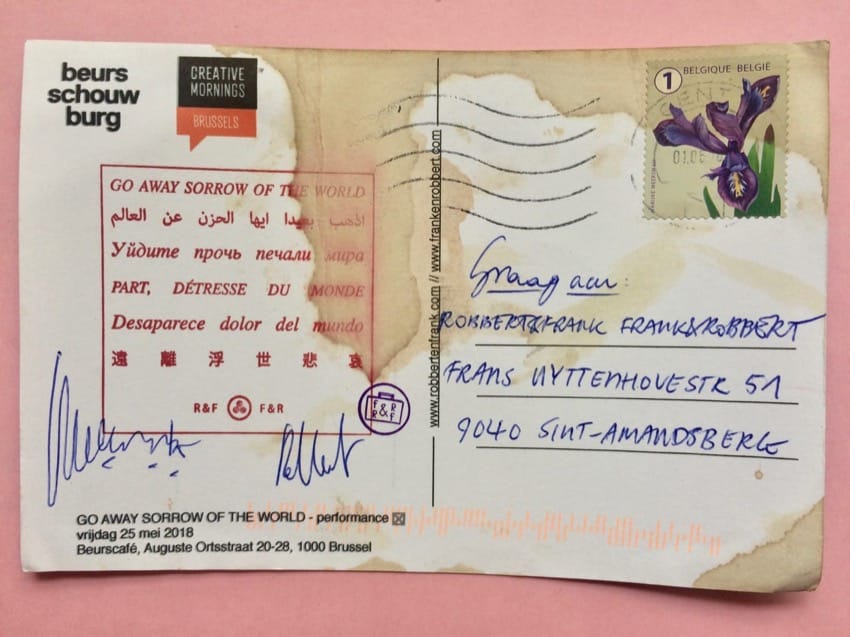 beurs
schouw
burg
CREATIVE
MORNINGS
BRUSSELS
GO AWAY SORROW OF THE WORLD
اذهب بعيدا ايها الحزن عن العالم
Уйдите прочь печали мира
PART, DÉTRESSE DU MONDE
Desaparece dolor del mundo
遠離浮世悲哀
R&F F&R
F&R
R&F
GO AWAY SORROW OF THE WORLD - performance
vrijdag 25 mei 2018
Beurscafé, Auguste Ortsstraat 20-28, 1000 Brussel
www.robbertenfrank.com // www.frankenrobbert.com
1 BELGIQUE BELGIË
GENT
Graag aan:
ROBBERT&FRANK FRANK&ROBBERT
FRANS UYTTENHOVESTR 51
9040 SINT-AMANDSBERG